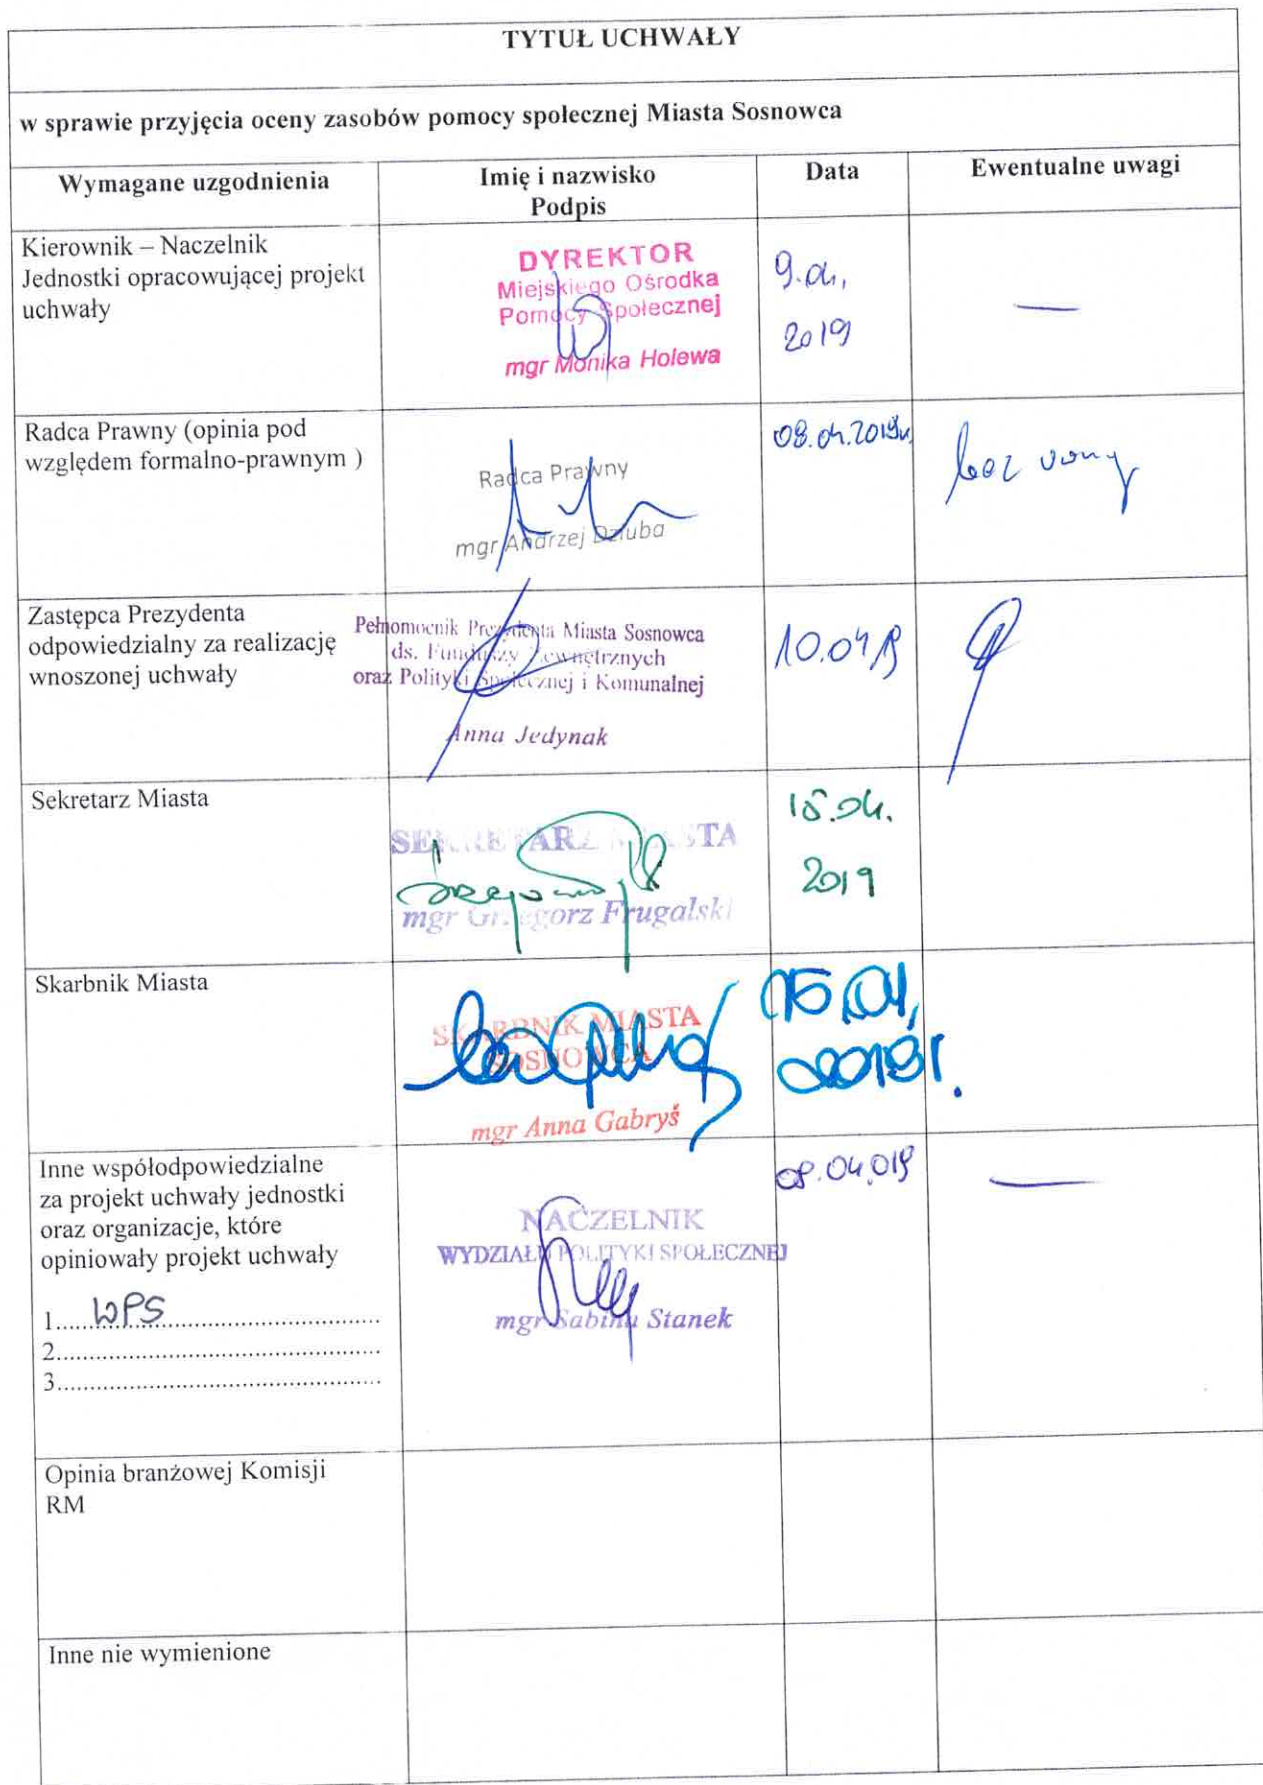 TYTUŁ UCHWAŁY
w sprawie przyjęcia oceny zasobów pomocy społecznej Miasta Sosnowca
Wymagane uzgodnienia
Imię i nazwisko
Podpis
Data
Ewentualne uwagi
Kierownik – Naczelnik
Jednostki opracowującej projekt
uchwały
DYREKTOR
Miejskiego Ośrodka
Pomocy Społecznej
mgr Monika Holewa
9.04,
2019
—
Radca Prawny (opinia pod
względem formalno-prawnym )
Radca Prawny
mgr Andrzej Dziuba
08.04.2019r.
bez uwag
Zastępca Prezydenta
odpowiedzialny za realizację
wnoszonej uchwały
Pełnomocnik Prezydenta Miasta Sosnowca
ds. Funduszy Zewnętrznych
oraz Polityki Społecznej i Komunalnej
Anna Jedynak
10.04.19
Sekretarz Miasta
SEKRETARZ MIASTA
mgr Grzegorz Frugalski
15.04.
2019
Skarbnik Miasta
SKARBNIK MIASTA
SOSNOWCA
mgr Anna Gabryś
15.04,
2019r.
Inne współodpowiedzialne
za projekt uchwały jednostki
oraz organizacje, które
opiniowały projekt uchwały
1.....WPS.................................
2.................................................
3.................................................
NACZELNIK
WYDZIAŁU POLITYKI SPOŁECZNEJ
mgr Sabina Stanek
08.04.019
—
Opinia branżowej Komisji
RM
Inne nie wymienione